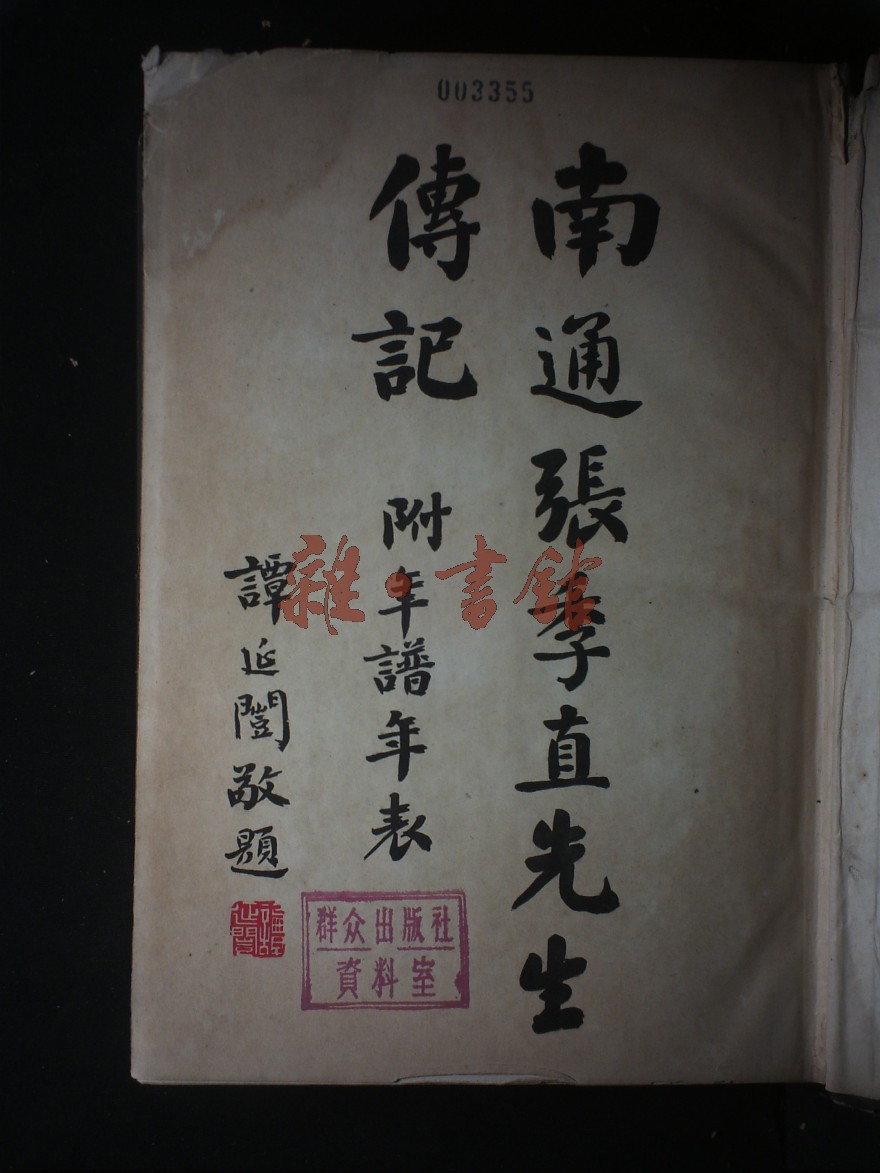 003355
南通張季直先生
傳記 附年譜年表
譚延闓敬題
群众出版社
資料室
雜·書館